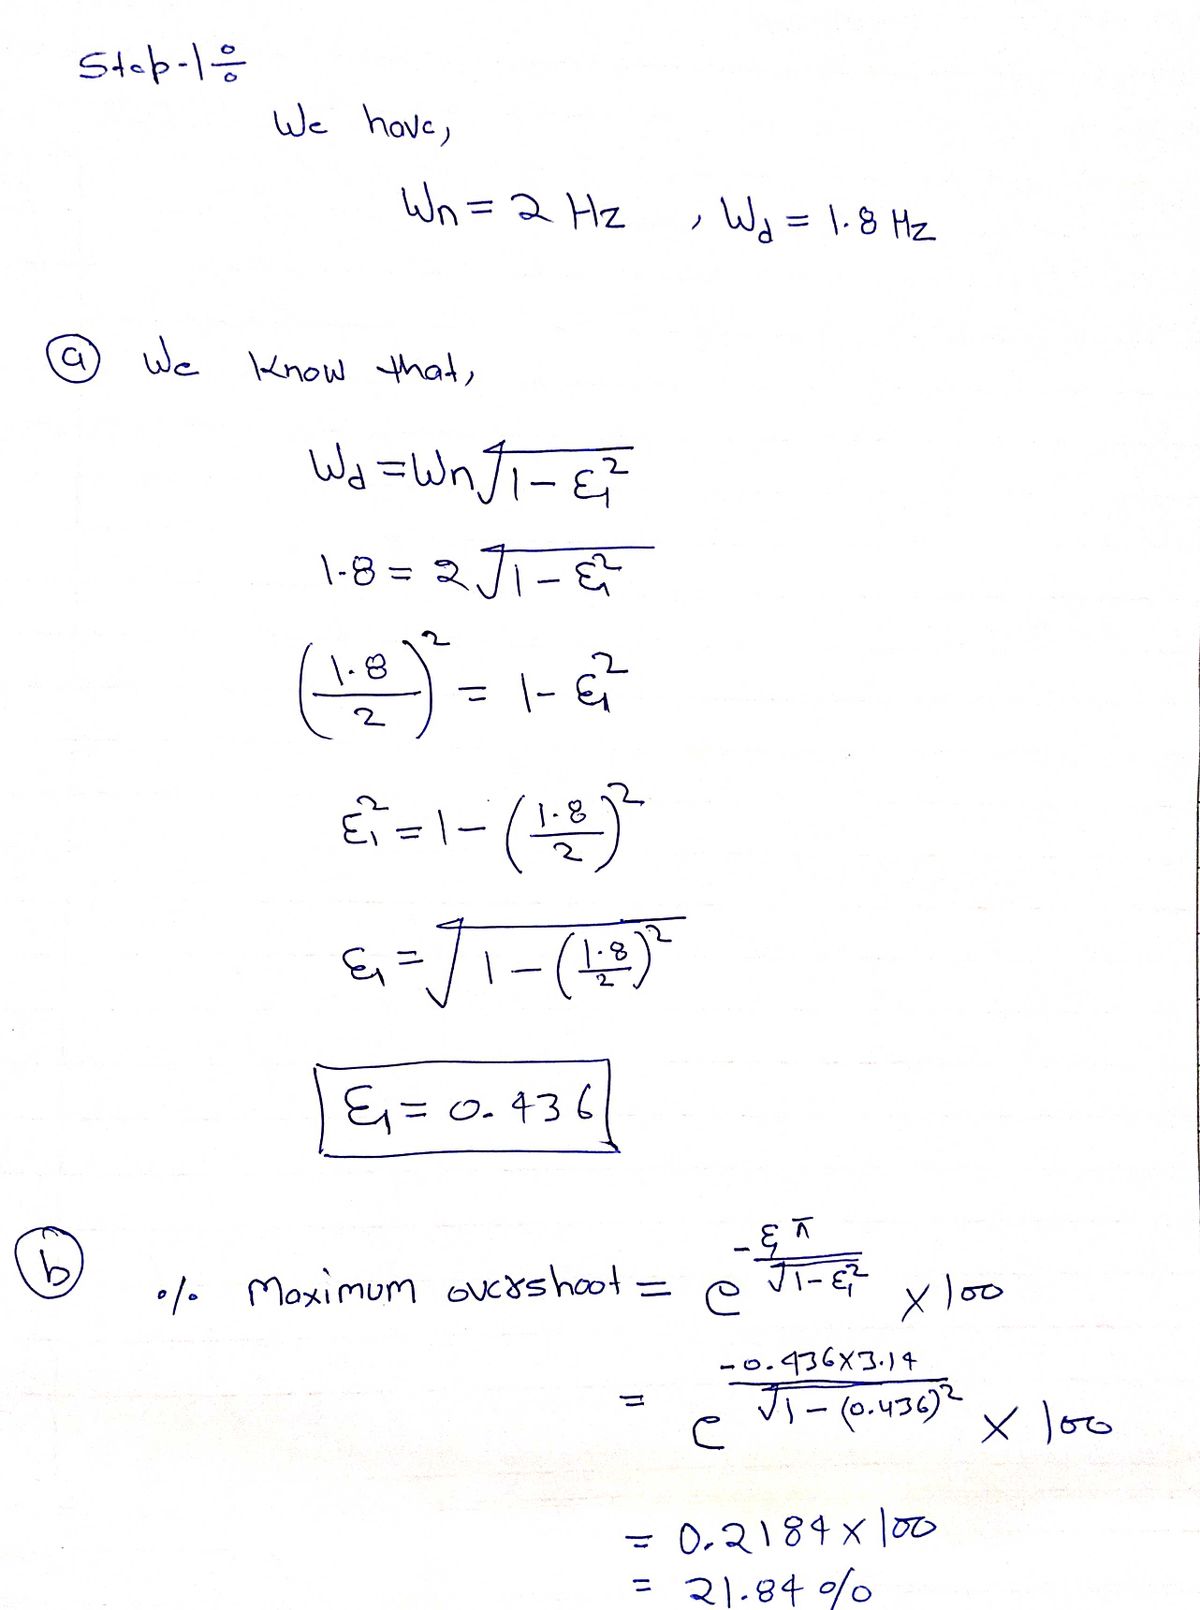 Step-1 ÷
We have,
Wn = 2 Hz , Wd = 1.8 Hz
(a) We know that,
Wd = Wn √(1 - ξ²)
1.8 = 2 √(1 - ξ²)
(1.8/2)² = 1 - ξ²
ξ² = 1 - (1.8/2)²
ξ = √(1 - (1.8/2)²)
ξ = 0.436
(b) % Maximum overshoot = e^(-ξπ/√(1-ξ²)) × 100
= e^(-0.436×3.14/√(1-(0.436)²)) × 100
= 0.2184 × 100
= 21.84 %